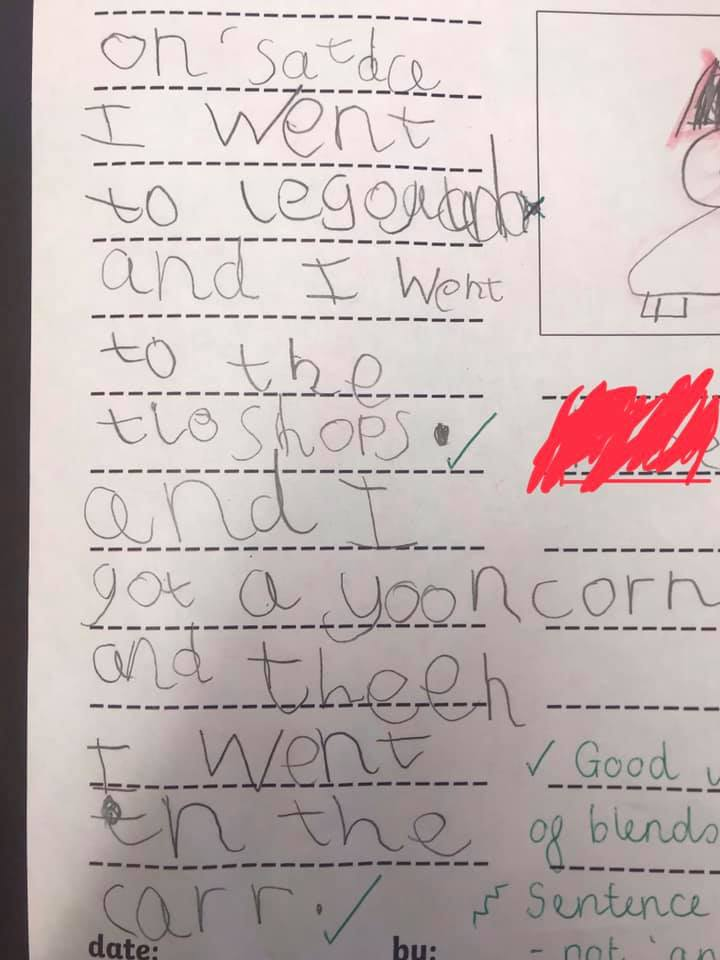 on satdce
I went
to legoland
and I went
to the
tlo shops. ✓
and I
got a yooncorn
and theen
I went
en the
carr. ✓
✓ Good
of blends
Sentence
- not 'an
date:
by: